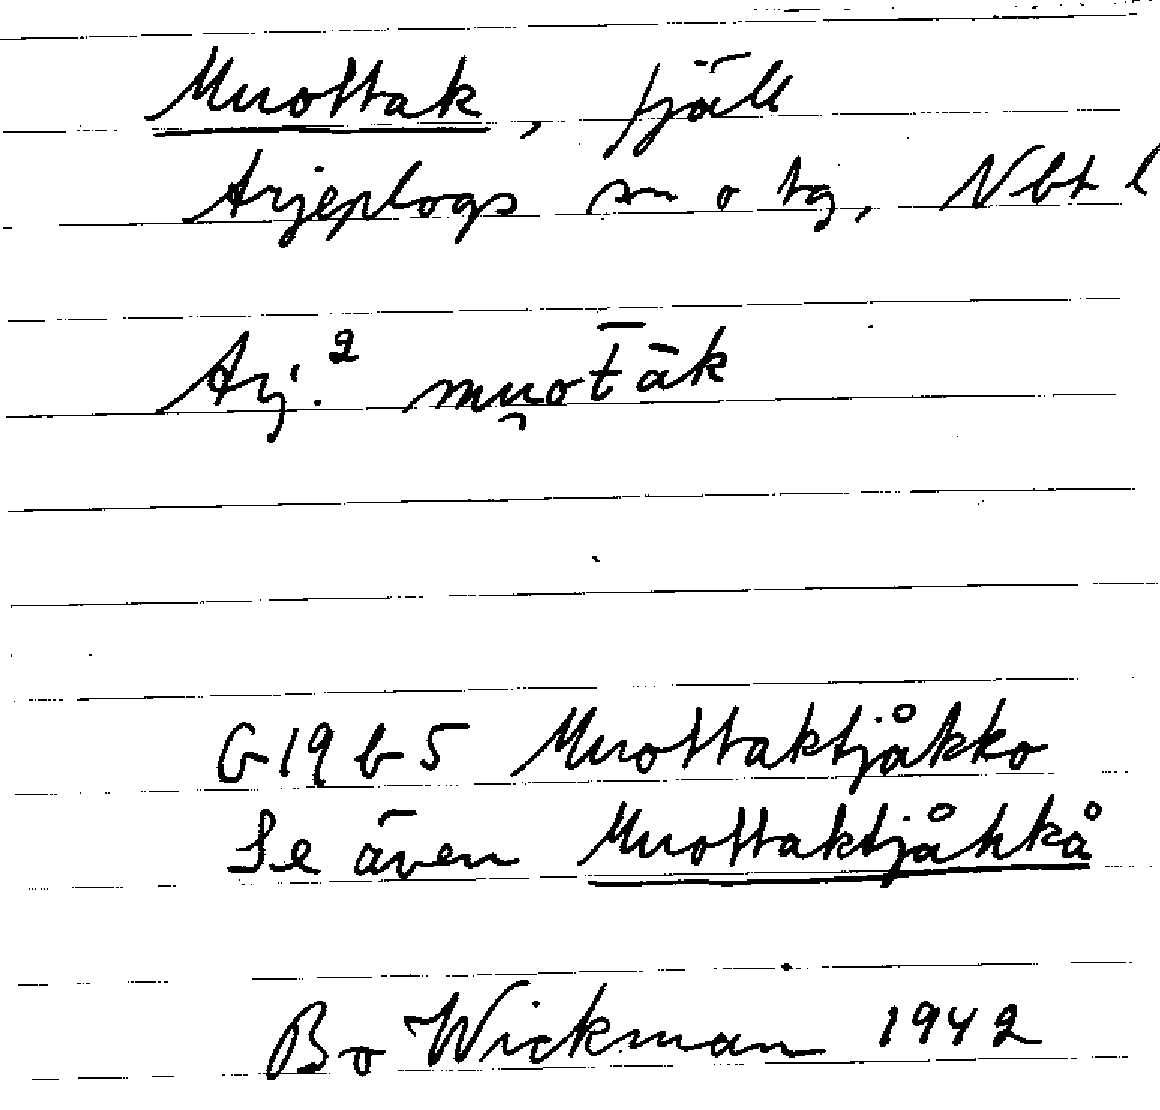 Muottak, fjäll
Arjeplogs sn o tg, Nbt l
Arj.² mu̯ot̄āk
G19b5 Muottaktjåkko
Se även Muottaktjåhkå
Bo Wickman 1942